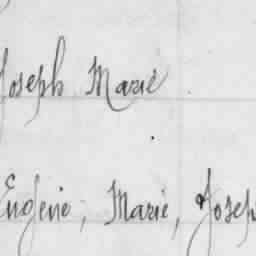 Joseph Marie
Eugénie, Marie, Joseph